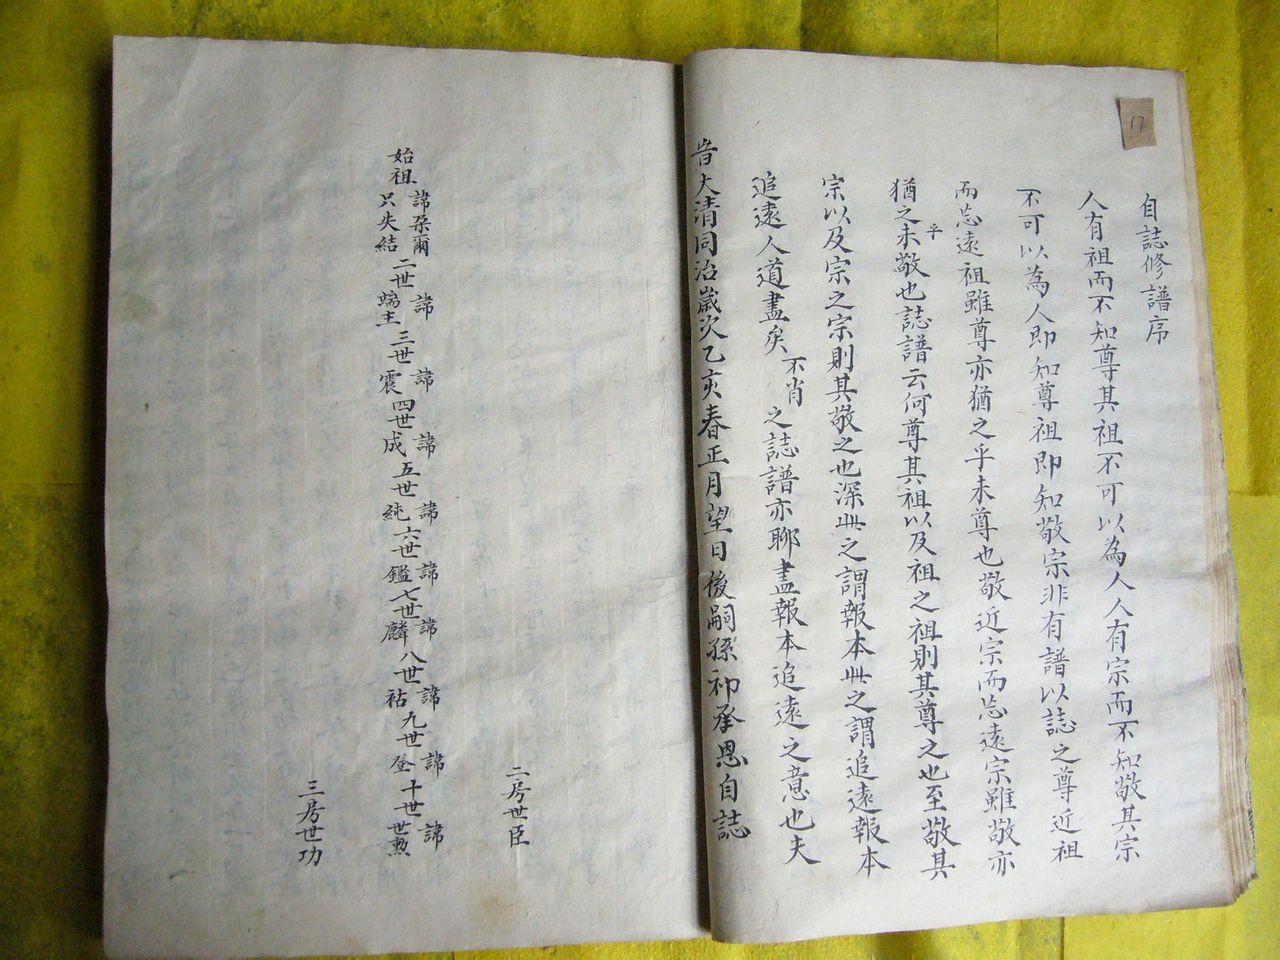 17
自誌修譜序
人有祖而不知尊其祖不可以為人人有宗而不知敬其宗
不可以為人即知尊祖即知敬宗非有譜以誌之尊近祖
而忘遠祖雖尊亦猶之乎未尊也敬近宗而忘遠宗雖敬亦
猶之乎未敬也誌譜云何尊其祖以及祖之祖則其尊之也至敬其
宗以及宗之宗則其敬之也深此之謂報本此之謂追遠報本
追遠人道盡矣不肖之誌譜亦聊盡報本追遠之意也夫
大清同治歲次乙亥春正月望日後嗣孫祁承恩自誌
二房世臣
始祖諱朶爾只失結二世諱端主三世諱震四世諱成五世諱純六世諱鑑七世諱麟八世諱祜九世諱登十世諱世勲
三房世功